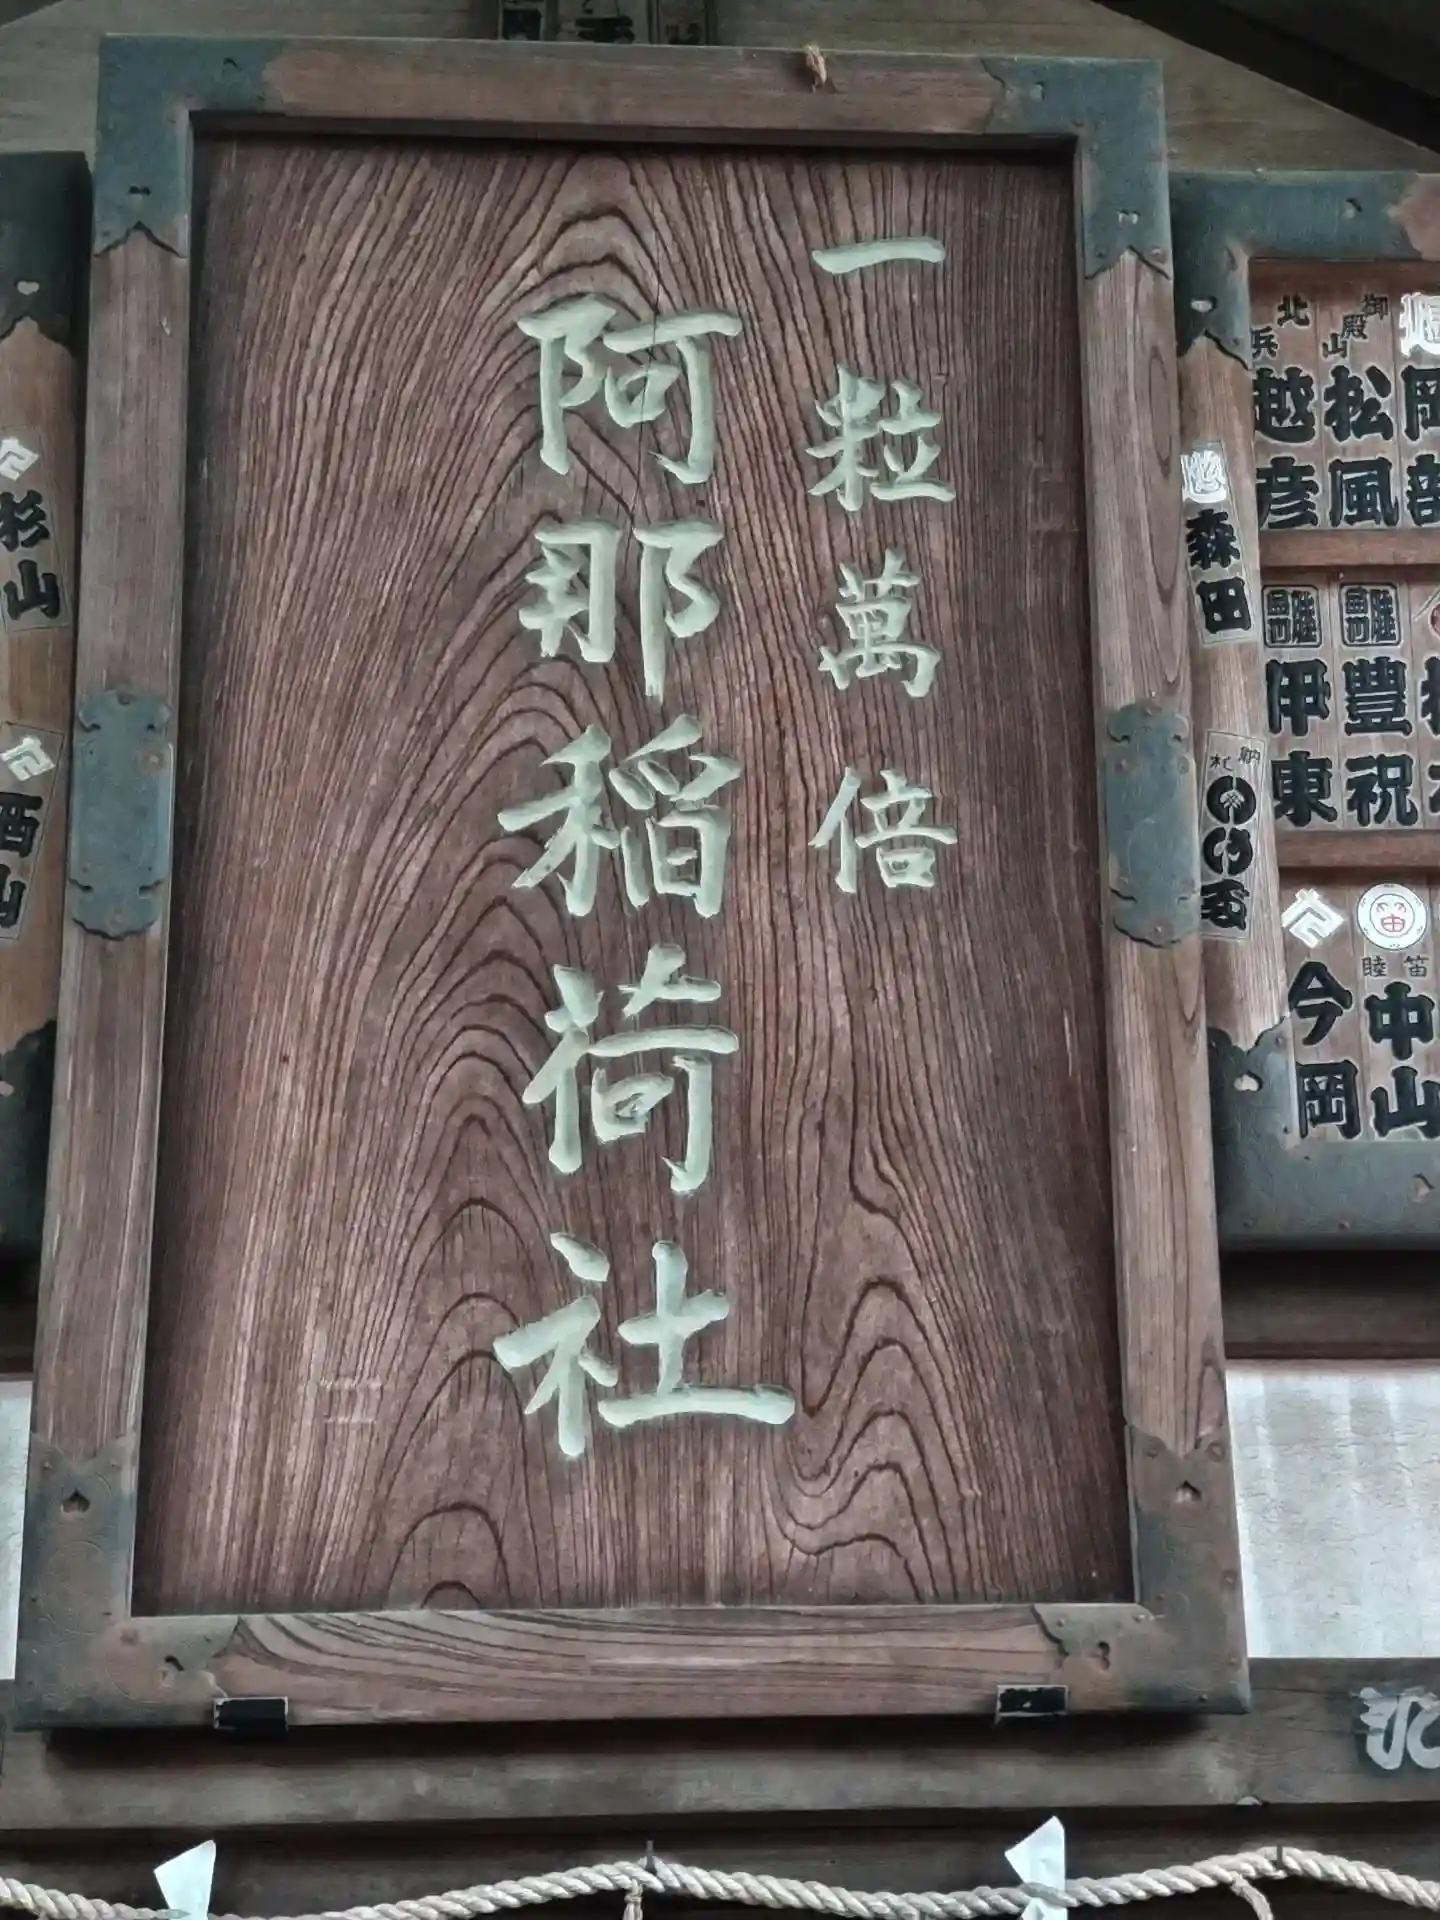 一粒萬倍
阿那稲荷社
杉山
西山
森田
納札
北兵
越彦
御殿山
松風
岡部
伊東
豊祝
今岡
睦笛
中山